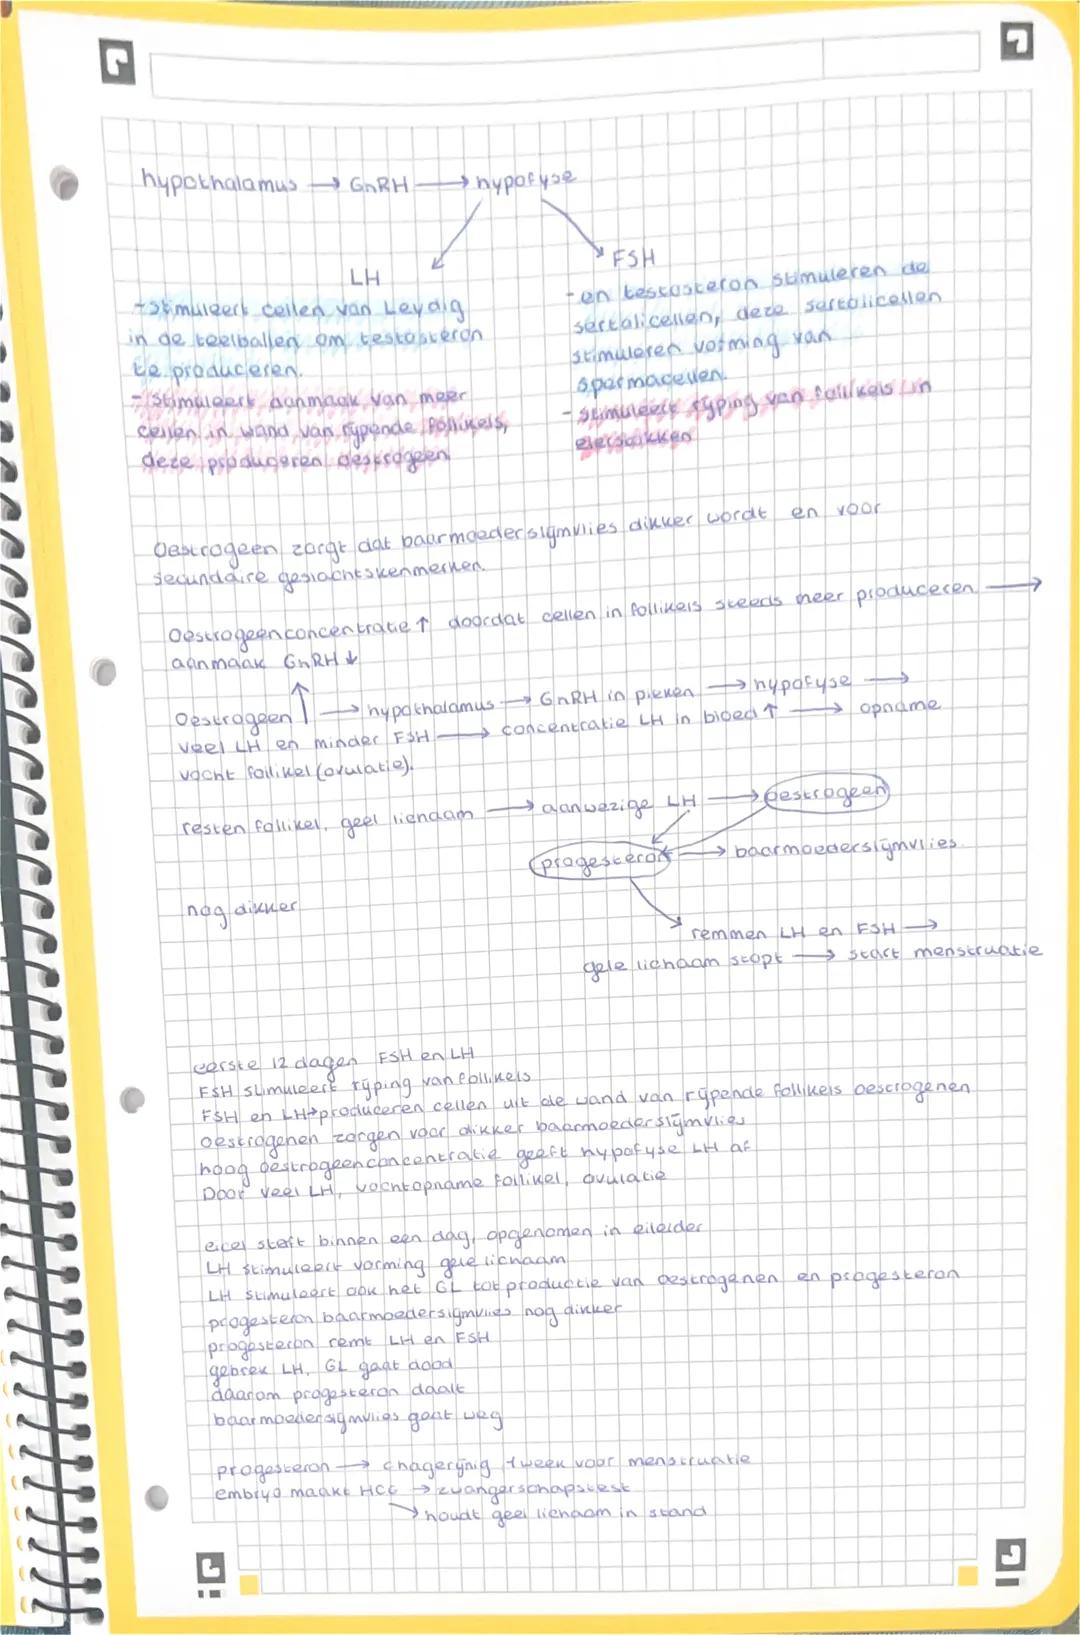 hypothalamus → GnRH → hypofyse
LH
- stimuleert cellen van Leydig
in de teelballen om testosteron
te produceren.
- stimuleert aanmaak van meer
cellen in wand van rijpende follikels,
deze produceren oestrogeen
FSH
- en testosteron stimuleren de
sertolicellen, deze sertolicellen
stimuleren vorming van
spermacellen.
- stimuleert rijping van follikels in
eierstokken
Oestrogeen zorgt dat baarmoederslijmvlies dikker wordt en voor
secundaire geslachtskenmerken.
Oestrogeenconcentratie ↑ doordat cellen in follikels steeds meer produceren →
aanmaak GnRH ↓
Oestrogeen ↑ → hypothalamus → GnRH in pieken → hypofyse →
veel LH en minder FSH → concentratie LH in bloed ↑ → opname
vocht follikel (ovulatie).
resten follikel, geel lichaam → aanwezige LH → oestrogeen
progesteron → baarmoederslijmvlies
nog dikker
remmen LH en FSH →
gele lichaam stopt → start menstruatie
eerste 12 dagen FSH en LH
FSH stimuleert rijping van follikels
FSH en LH → produceren cellen uit de wand van rijpende follikels oestrogenen
oestrogenen zorgen voor dikker baarmoederslijmvlies
hoog oestrogeenconcentratie geeft hypofyse LH af
Door veel LH, vochtopname follikel, ovulatie
eicel sterft binnen een dag, opgenomen in eileider
LH stimuleert vorming gele lichaam
LH stimuleert ook het GL tot productie van oestrogenen en progesteron
progesteron baarmoederslijmvlies nog dikker
progesteron remt LH en FSH
gebrek LH, GL gaat dood
daarom progesteron daalt
baarmoederslijmvlies gaat weg
progesteron → chagerijnig 1 week voor menstruatie
embryo maakt HCG → zwangerschapstest
→ houdt geel lichaam in stand